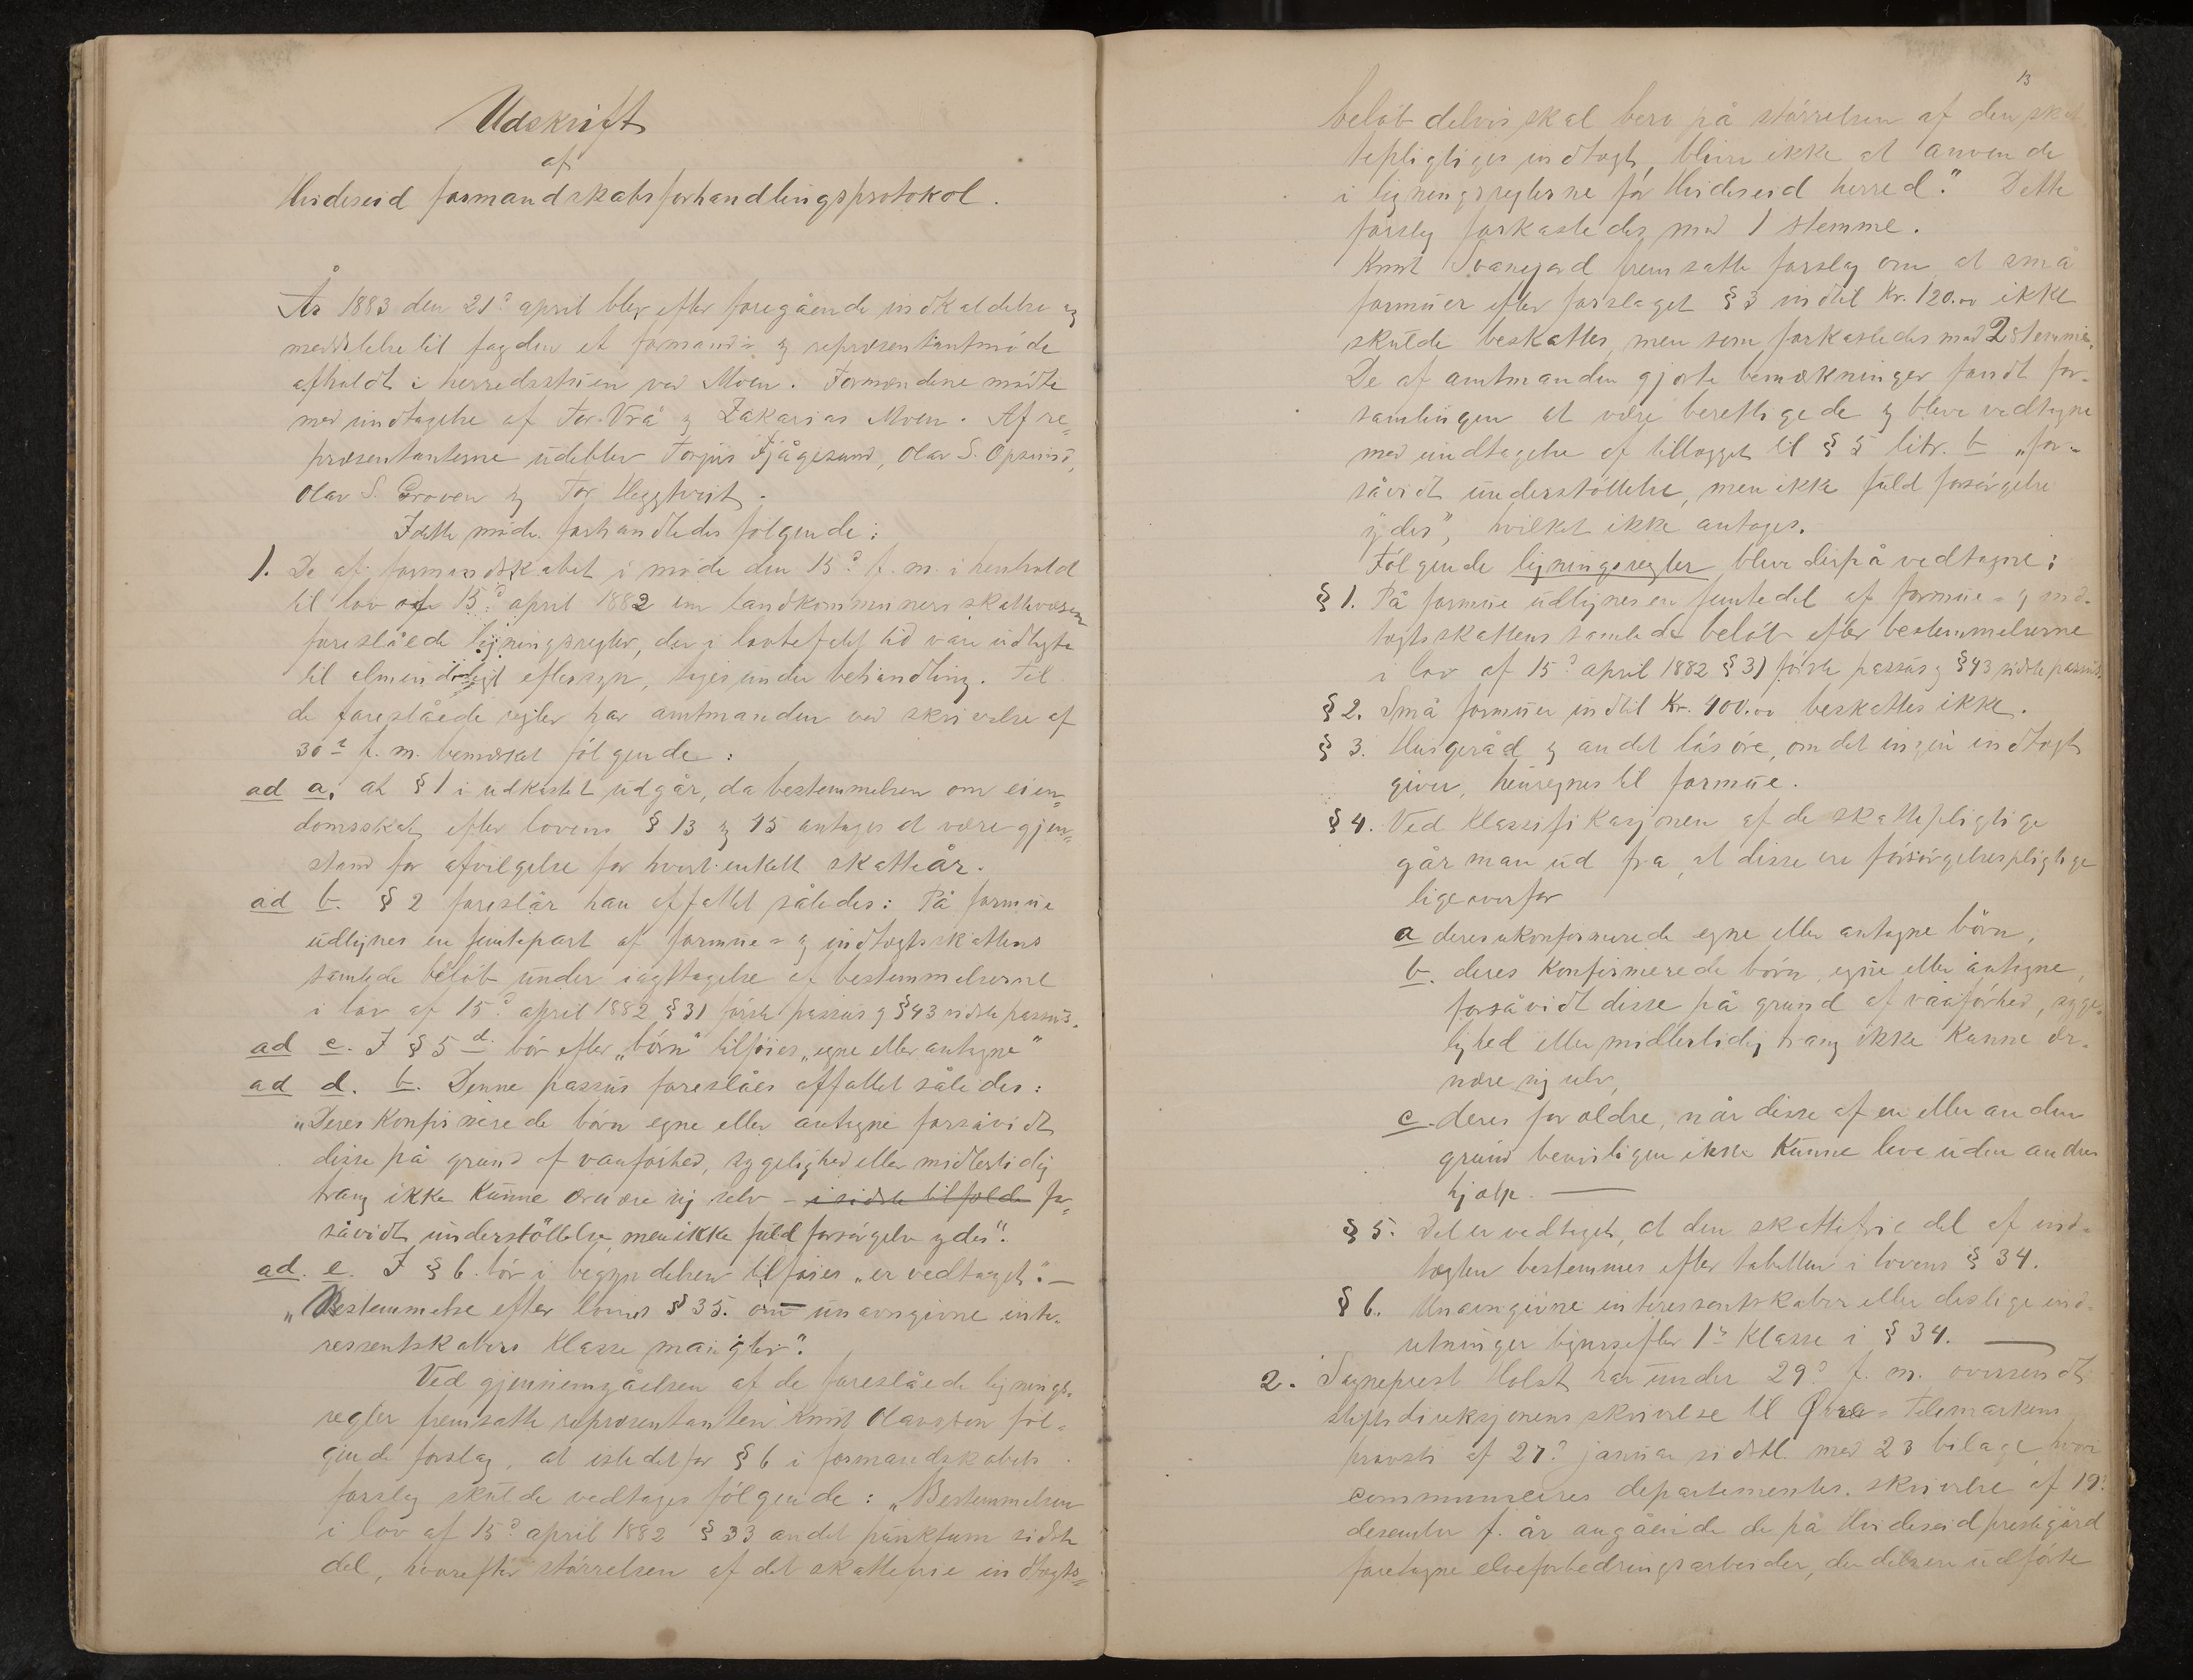 Udskrift
af
Hvideseid formandskabsforhandlingsprotokol.
År 1883 den 21? april blev efter foregående indkaldelse og
meddelelse til fogden et formands- og repræsentantmöde
afholdt i herredsstuen ved Moen. Formændene mödte
med undtagelse af Tor Vrå og Zakarias Moen. Af re=
præsentanterne udeblev Torjus Fjågesund, Olav S. Opsund,
Olav S. Groven og Tor Heggtveit.
I dette möde forhandledes fölgende:
1. De af formandskabet i möde den 15? f. m. i henhold
til lov af 15? april 1882 om landkommuners skattevæsen
foreslåede ligningsregler, der i lovbefalt tid vare udlagte
til almindeligt eftersyn, toges under behandling. Til
de foreslåede regler har amtmanden ved skrivelse af
30? f. m. bemærket fölgende:
ad a. at § 1 i udkastet udgår, da bestemmelsen om eien=
domsskat efter lovens § 13 og 15 antages at være gjen=
stand for afvelgelse for hvert enkelt skatteår.
ad b. § 2 foreslår han affattet således: På formue
udlignes en femtepart af formue= og indtægtsskattens
samlede belöb under iagttagelse af bestemmelserne
i lov af 15? april 1882 § 31 förste passus og § 43 sidste passus.
ad c. I § 5 d. bör efter „börn" tilföies „egne eller antagne"
ad d. b. Denne passus foreslåes affattet således:
„Deres konfirmerede börn egne eller antagne forsåvidt
disse på grund af vanförhed, sygelighed eller midlertidig
trang ikke kunne ernære sig selv – i sidste tilfælde for=
såvidt understöttelse, men ikke fuld forsörgelse ydes".
ad. e. I § 6 bör i begyndelsen tilföies „er vedtaget". —
„Bestemmelse efter lovens § 35. om unavngivne inte-
ressentskabers klasse mangler".
Ved gjennemgåelsen af de foreslåede lignings-
regler fremsatte repræsentanten Knut Olavsson föl-
gende forslag, at istedetfor § 6 i formandskabets
forslag skulde vedtages fölgende: „Bestemmelsen
i lov af 15? april 1882 § 33 andet punktum sidste
del, hvorefter störrelsen af det skattefrie indtægts=
13
belöb delvis skal bero på störrelsen af den skat
tepligtiges indtægt, bliver ikke at anvende
i ligningsreglerne for Hvideseid herred." Dette
forslag forkastedes mod 1 stemme.
Knut fremsatte forslag om at små
formuer efter forslaget § 3 indtil Kr. 120.00 ikke
skulde beskattes, men som forkastedes mod 2 stemmer.
De af amtmanden gjorte bemærkninger fandt for-
samlingen at være berettigede og bleve vedtagne
med undtagelse af tillægget til § 5 litr. b „for-
såvidt understöttelse, men ikke fuld forsörgelse
ydes", hvilket ikke antages.
Fölgende ligningsregler bleve derpå vedtagne:
§ 1. På formue udlignes en femtedel af formue- og ind-
tægtsskattens samlede belöb efter bestemmelserne
i lov af 15? april 1882 § 31 förste passus og § 43 sidste passus.
§ 2. Små formuer indtil Kr. 400.00 beskattes ikke.
§ 3. Husgeråd og andet lösöre, om det ingen indtægt
giver, henregnes til formue.
§ 4. Ved klassifikasjonen af de skattepligtige
går man ud fra, at disse ere forsörgelsespligtige
ligeoverfor
a deres ukonfirmerede egne eller antagne börn,
b. deres konfirmerede börn, egne eller antagne,
forsåvidt disse på grund af vanförhed, syge-
lighed eller midlertidig trang ikke kunne er-
nære sig selv,
c. deres forældre, når disse af en eller anden
grund bevisligen ikke kunne leve uden andres
hjælp. —
§ 5. Det er vedtaget, at den skattefrie del af ind-
tægten bestemmes efter tabellen i lovens § 34.
§ 6. Unavngivne interessentskaber eller deslige ind-
retninger lignes efter 1ste klasse i § 34. —
2. Sogneprest Holst har under 29? f. m. oversendt
stiftsdireksjonens skrivelse til Övre=Telemarkens
provsti af 27? januar sidstl. med 23 bilage, hvori
departementes. skrivelse af 19?
desember f. år angående de på Hvideseid prestegård
foretagne elveforbedringsarbeider, der delsere udförte